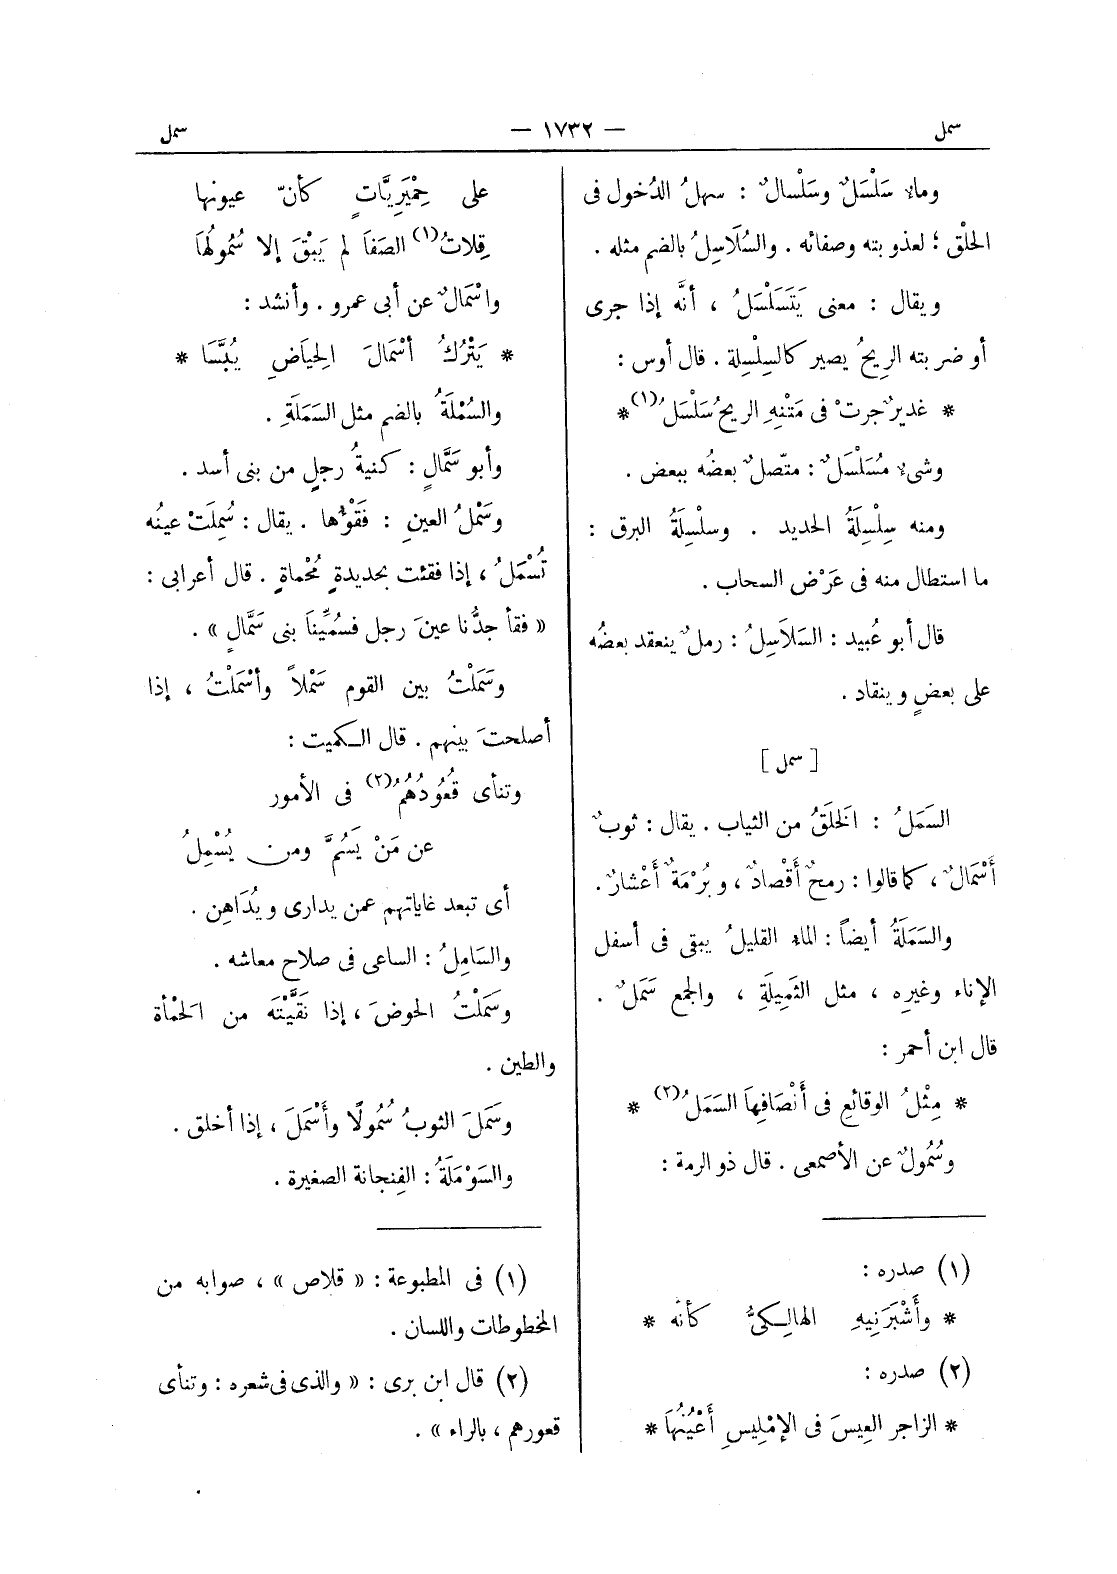 سمل — ١٧٣٢ — سمل
وماء سَلْسَلٌ وسَلْسالٌ : سهلُ الدُخول فى
الحلْق ؛ لعذوبته وصفائه . والسُلَاسِلُ بالضم مثله .
ويقال : معنى يَتَسَلْسَلُ ، أنَّه إذا جرى
أو ضربته الريحُ يصير كالسِلْسِلة . قال أوس :
* غديرٌ جرتْ فى مَتْنِهِ الريحُ سَلْسَلُ (١) *
وشىء مُسَلْسَلٌ : متّصلٌ بعضُه ببعض .
ومنه سِلْسِلَةُ الحديد . وسلْسِلَةُ البرق :
ما استطال منه فى عَرْض السحاب .
قال أبو عُبيد : السَلَاسِلُ : رملٌ ينعقد بعضُه
على بعضٍ وينقاد .
[ سمل ]
السَمَلُ : الخَلَقُ من الثياب . يقال : ثوبٌ
أَسْمَالٌ ، كما قالوا : رمحٌ أَقْصادٌ ، وبُرْمَةٌ أَعْشارٌ .
والسَمَلَةُ أيضاً : الماء القليلُ يبقى فى أسفل
الإناء وغيره ، مثل الثَمِيلَةِ ، والجمع سَمَلٌ .
قال ابن أحمر :
* مِثْلُ الوقائعِ فى أَنْصَافِهاَ السَمَلُ (٢) *
وسُمُولٌ عن الأصمعى . قال ذو الرمة :
(١) صدره :
* وأَشْبَرَنِيهِ الهالِكىُّ كأنّه *
(٢) صدره :
* الزاجر العِيسَ فى الإمْلِيسِ أَعْيُنُهاَ *
على حِمْيَرِيَّاتٍ كأنّ عيونها
قِلاتُ (١) الصَفاَ لم يَبْقَ إلا سُمُولُهاَ
واسْمَالٌ عن أبى عمرو . وأنشد :
* يَتْرُكُ أسْمَالَ الحِياَضِ يُبَّسَا *
والسُمْلَةُ بالضم مثل السَمَلَةِ .
وأبو سَمَّالٍ : كنيةُ رجلٍ من بنى أسد .
وسَمْلُ العينِ : فَقْؤُها . يقال : سُمِلَتْ عينُه
تُسْمَلُ ، إذا فقئت بحديدةٍ مُحْماةٍ . قال أعرابى :
« فقأ جدُّنا عينَ رجل فسُمِّيناَ بنى سَمَّالٍ » .
وسَمَلْتُ بين القوم سَمْلاً وأسْمَلْتُ ، إذا
أصلحتَ بينهم . قال الكميت :
وتنأى قُعُودُهُمُ (٢) فى الأمور
عن مَنْ يَسُمُّ ومن يُسْمِلُ
أى تبعد غاياتهم عمن يدارى ويُدَاهِن .
والسَامِلُ : الساعى فى صلاح معاشه .
وسَمَلْتُ الحوضَ ، إذا نَقَّيْتَه من الحَمْأة
والطين .
وسَمَلَ الثوبُ سُمُولًا وأَسْمَلَ ، إذا أخلق .
والسَوْمَلَةُ : الفِنجانة الصغيرة .
(١) فى المطبوعة : « قلاص » ، صوابه من
المخطوطات واللسان .
(٢) قال ابن برى : « والذى فى شعره : وتنأى
قعورهم ، بالراء » .